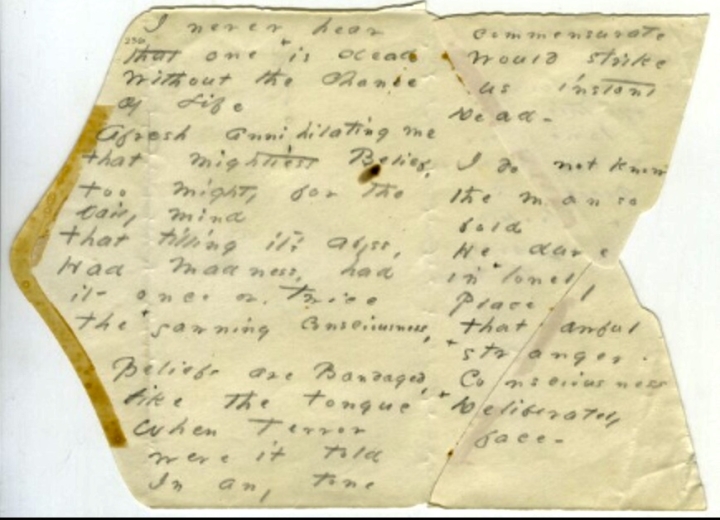 I never hear
that one is dead
Without the Chance
of Life
Afresh annihilating me
That mightiest Belief,
Too mighty for the
Daily mind
That tilling it's abyss,
Had Madness, had
it once or, Twice
The yawning Consciousness,
Beliefs are Bandaged,
like the Tongue
When Terror
were it told
In any Tone
commensurate
Would strike
us instant
Dead -
I do not know
the man so
bold
He dare
in lonely
Place
That awful
stranger.
Consciousness
Deliberately
face -